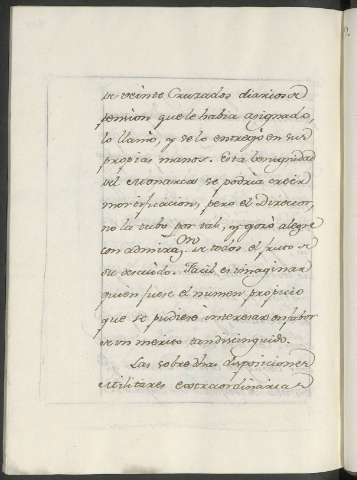 de veinte Cruzados diarios de
pension que le habia asignado,
lo llamò, y se lo entregò en sus
propias manos. Esta benignidad
del Monarca se podria creer
mortificacion, pero el Director,
no la tubo por tal, y gozò alegre
con admiraz.on de todos el fruto de
su descuido. Facil es imaginar
quien fuese el numen propicio
que se pudiese interesar en fabor
de un merito tan distinguido.
Las sobredhas disposiciones
Militares extraordinarias